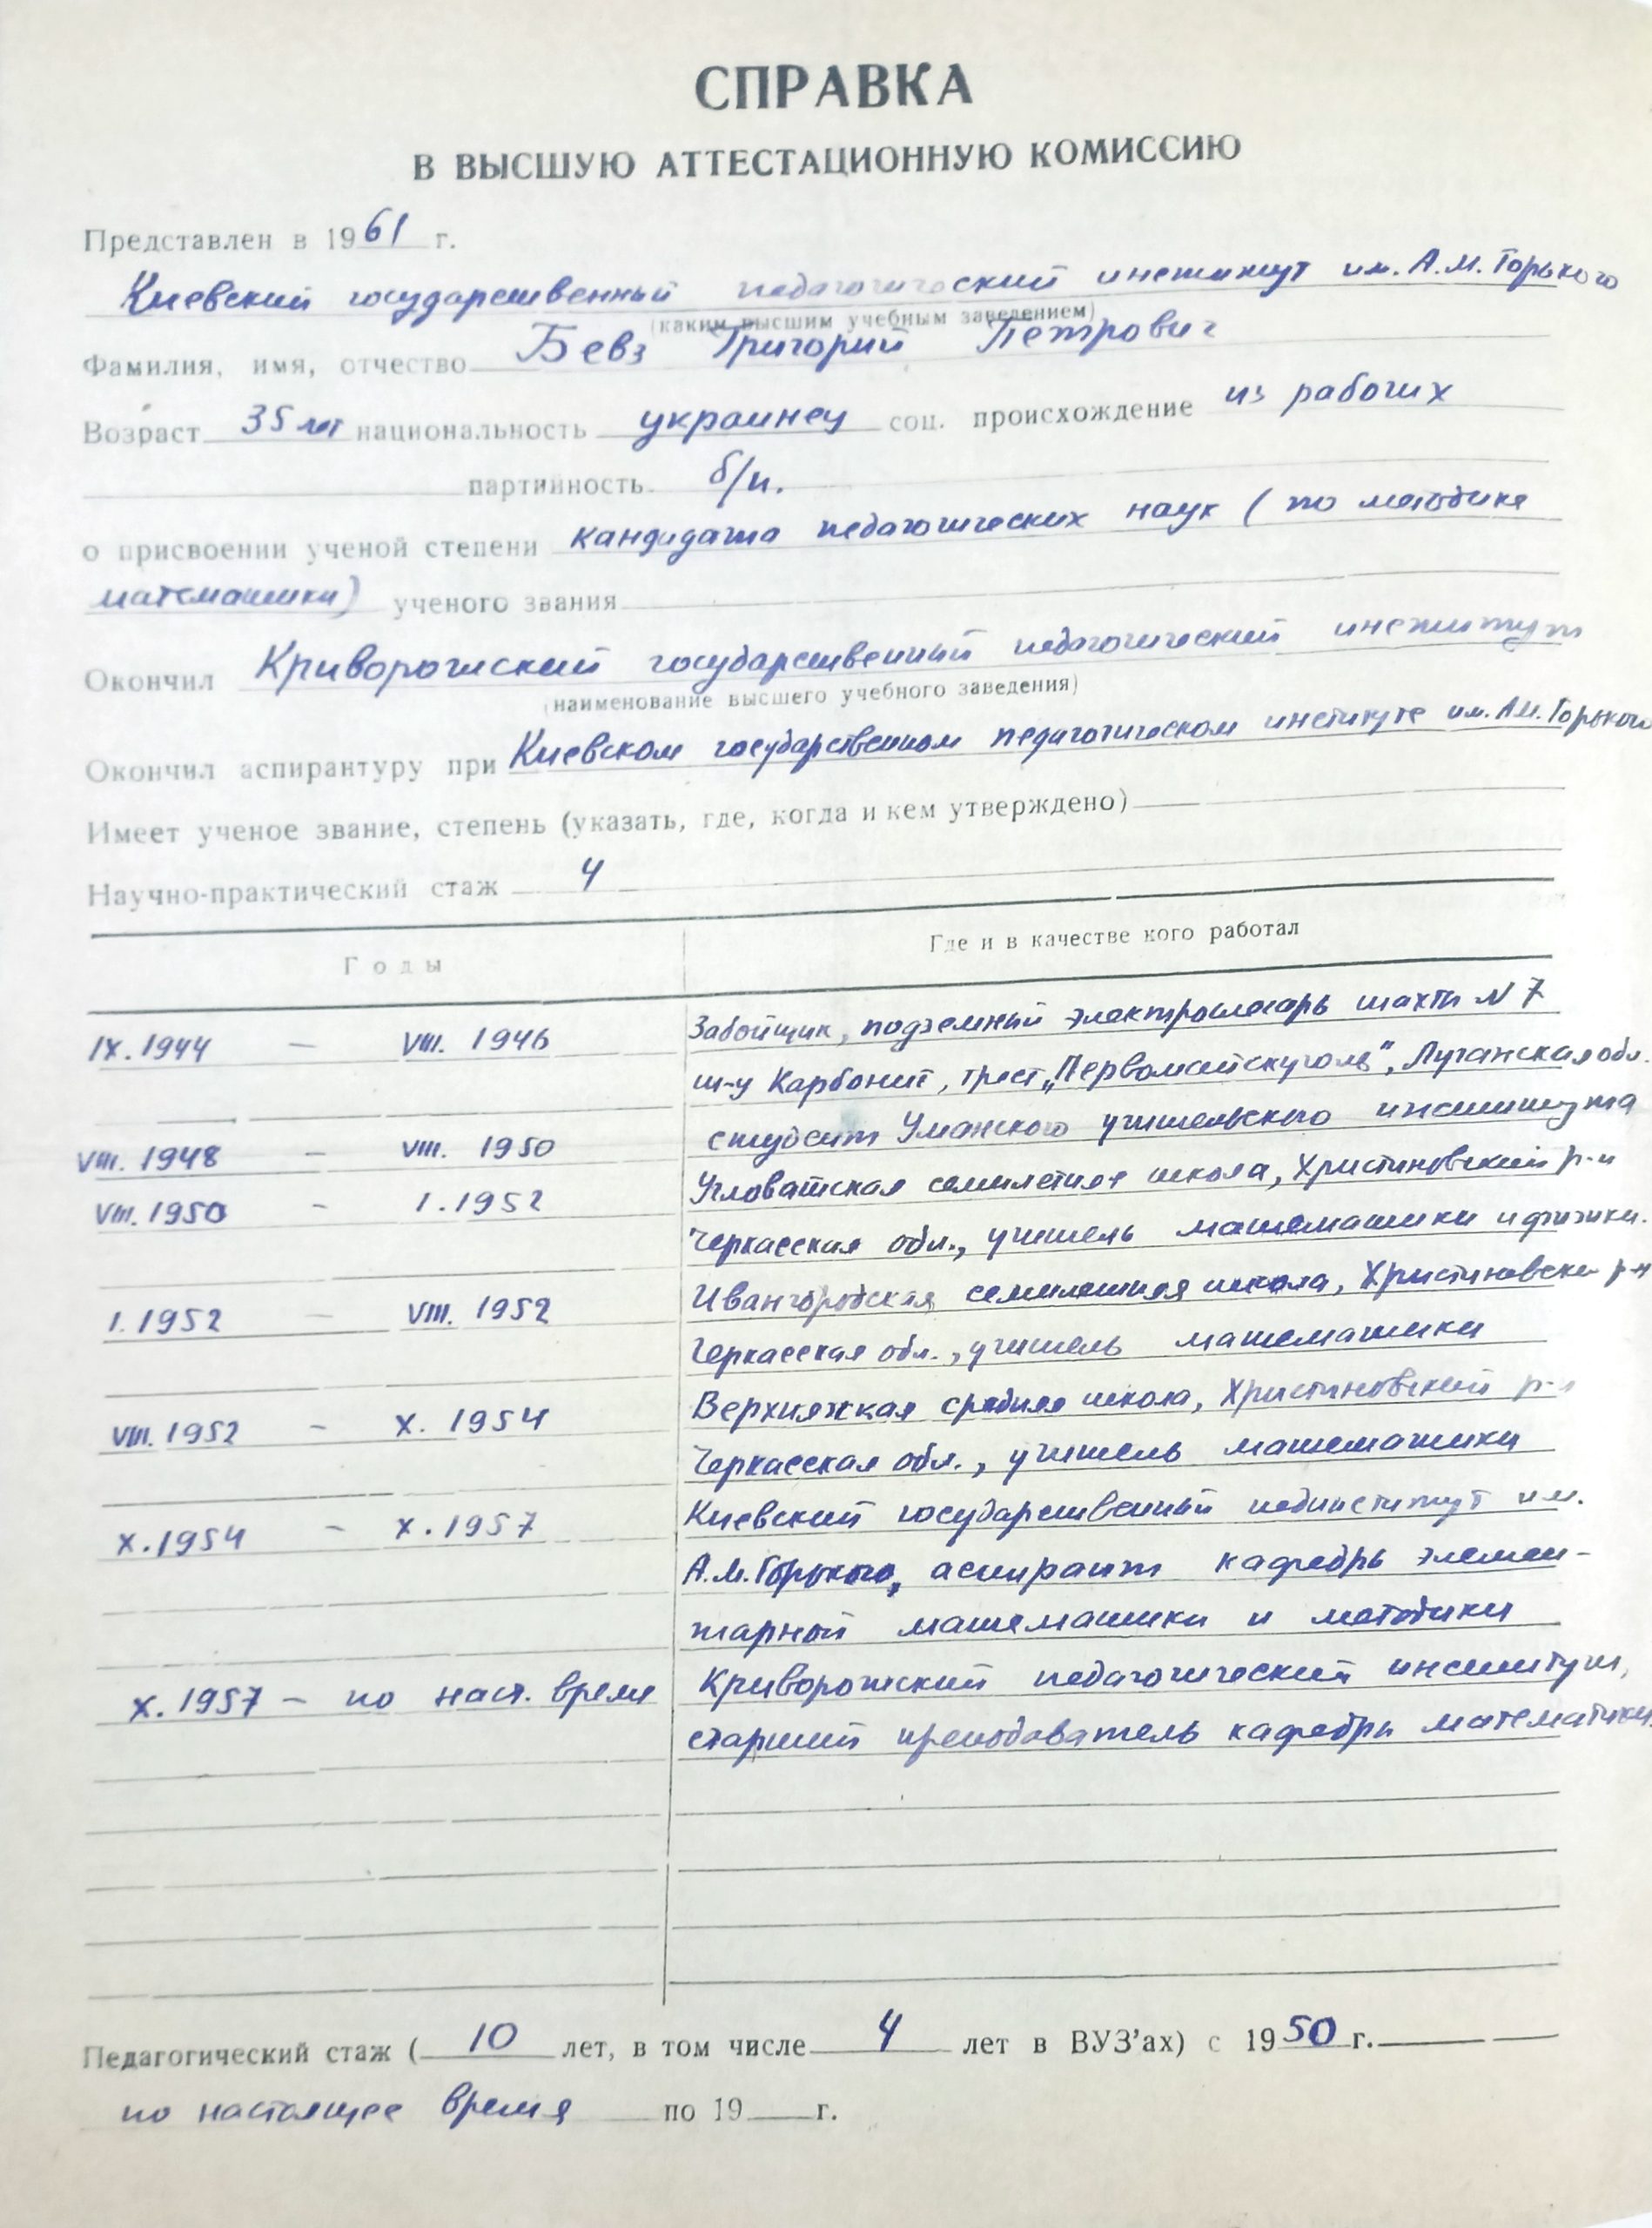 СПРАВКА
В ВЫСШУЮ АТТЕСТАЦИОННУЮ КОМИССИЮ
Представлен в 1961 г.
Киевский государственный педагогический институт им. А.М. Горького
(каким высшим учебным заведением)
Фамилия, имя, отчество Бевз Григорий Петрович
Возраст 35 лет национальность украинец соц. происхождение из рабочих
партийность б/п.
о присвоении ученой степени кандидата педагогических наук (по методике
математики) ученого звания
Окончил Криворожский государственный педагогический институт
(наименование высшего учебного заведения)
Окончил аспирантуру при Киевском государственном педагогическом институте им. А.М. Горького
Имеет ученое звание, степень (указать, где, когда и кем утверждено) —
Научно-практический стаж 4
Годы Где и в качестве кого работал
IX. 1944 — VIII. 1946 Забойщик, подземный электрослесарь шахты N 7
ш-у Карбонит, трест „Первомайскуголь", Луганская обл.
VIII. 1948 — VIII. 1950 студент Уманского учительского института
VIII. 1950 — I. 1952 Угловатская семилетняя школа, Христиновский р-н
Черкасская обл., учитель математики и физики.
I. 1952 — VIII. 1952 Ивангородская семилетняя школа, Христиновски р-н
Черкасская обл., учитель математики
VIII. 1952 — X. 1954 Верхняжская средняя школа, Христиновский р-н
Черкасская обл., учитель математики
X. 1954 — X. 1957 Киевский государственный пединститут им.
А.М. Горького, аспирант кафедры элемен-
тарной математики и методики
X. 1957 — по наст. время Криворожский педагогический институт,
старший преподаватель кафедры математики.
Педагогический стаж (10 лет, в том числе 4 лет в ВУЗ'ах) с 1950 г.
по настоящее время по 19 г.